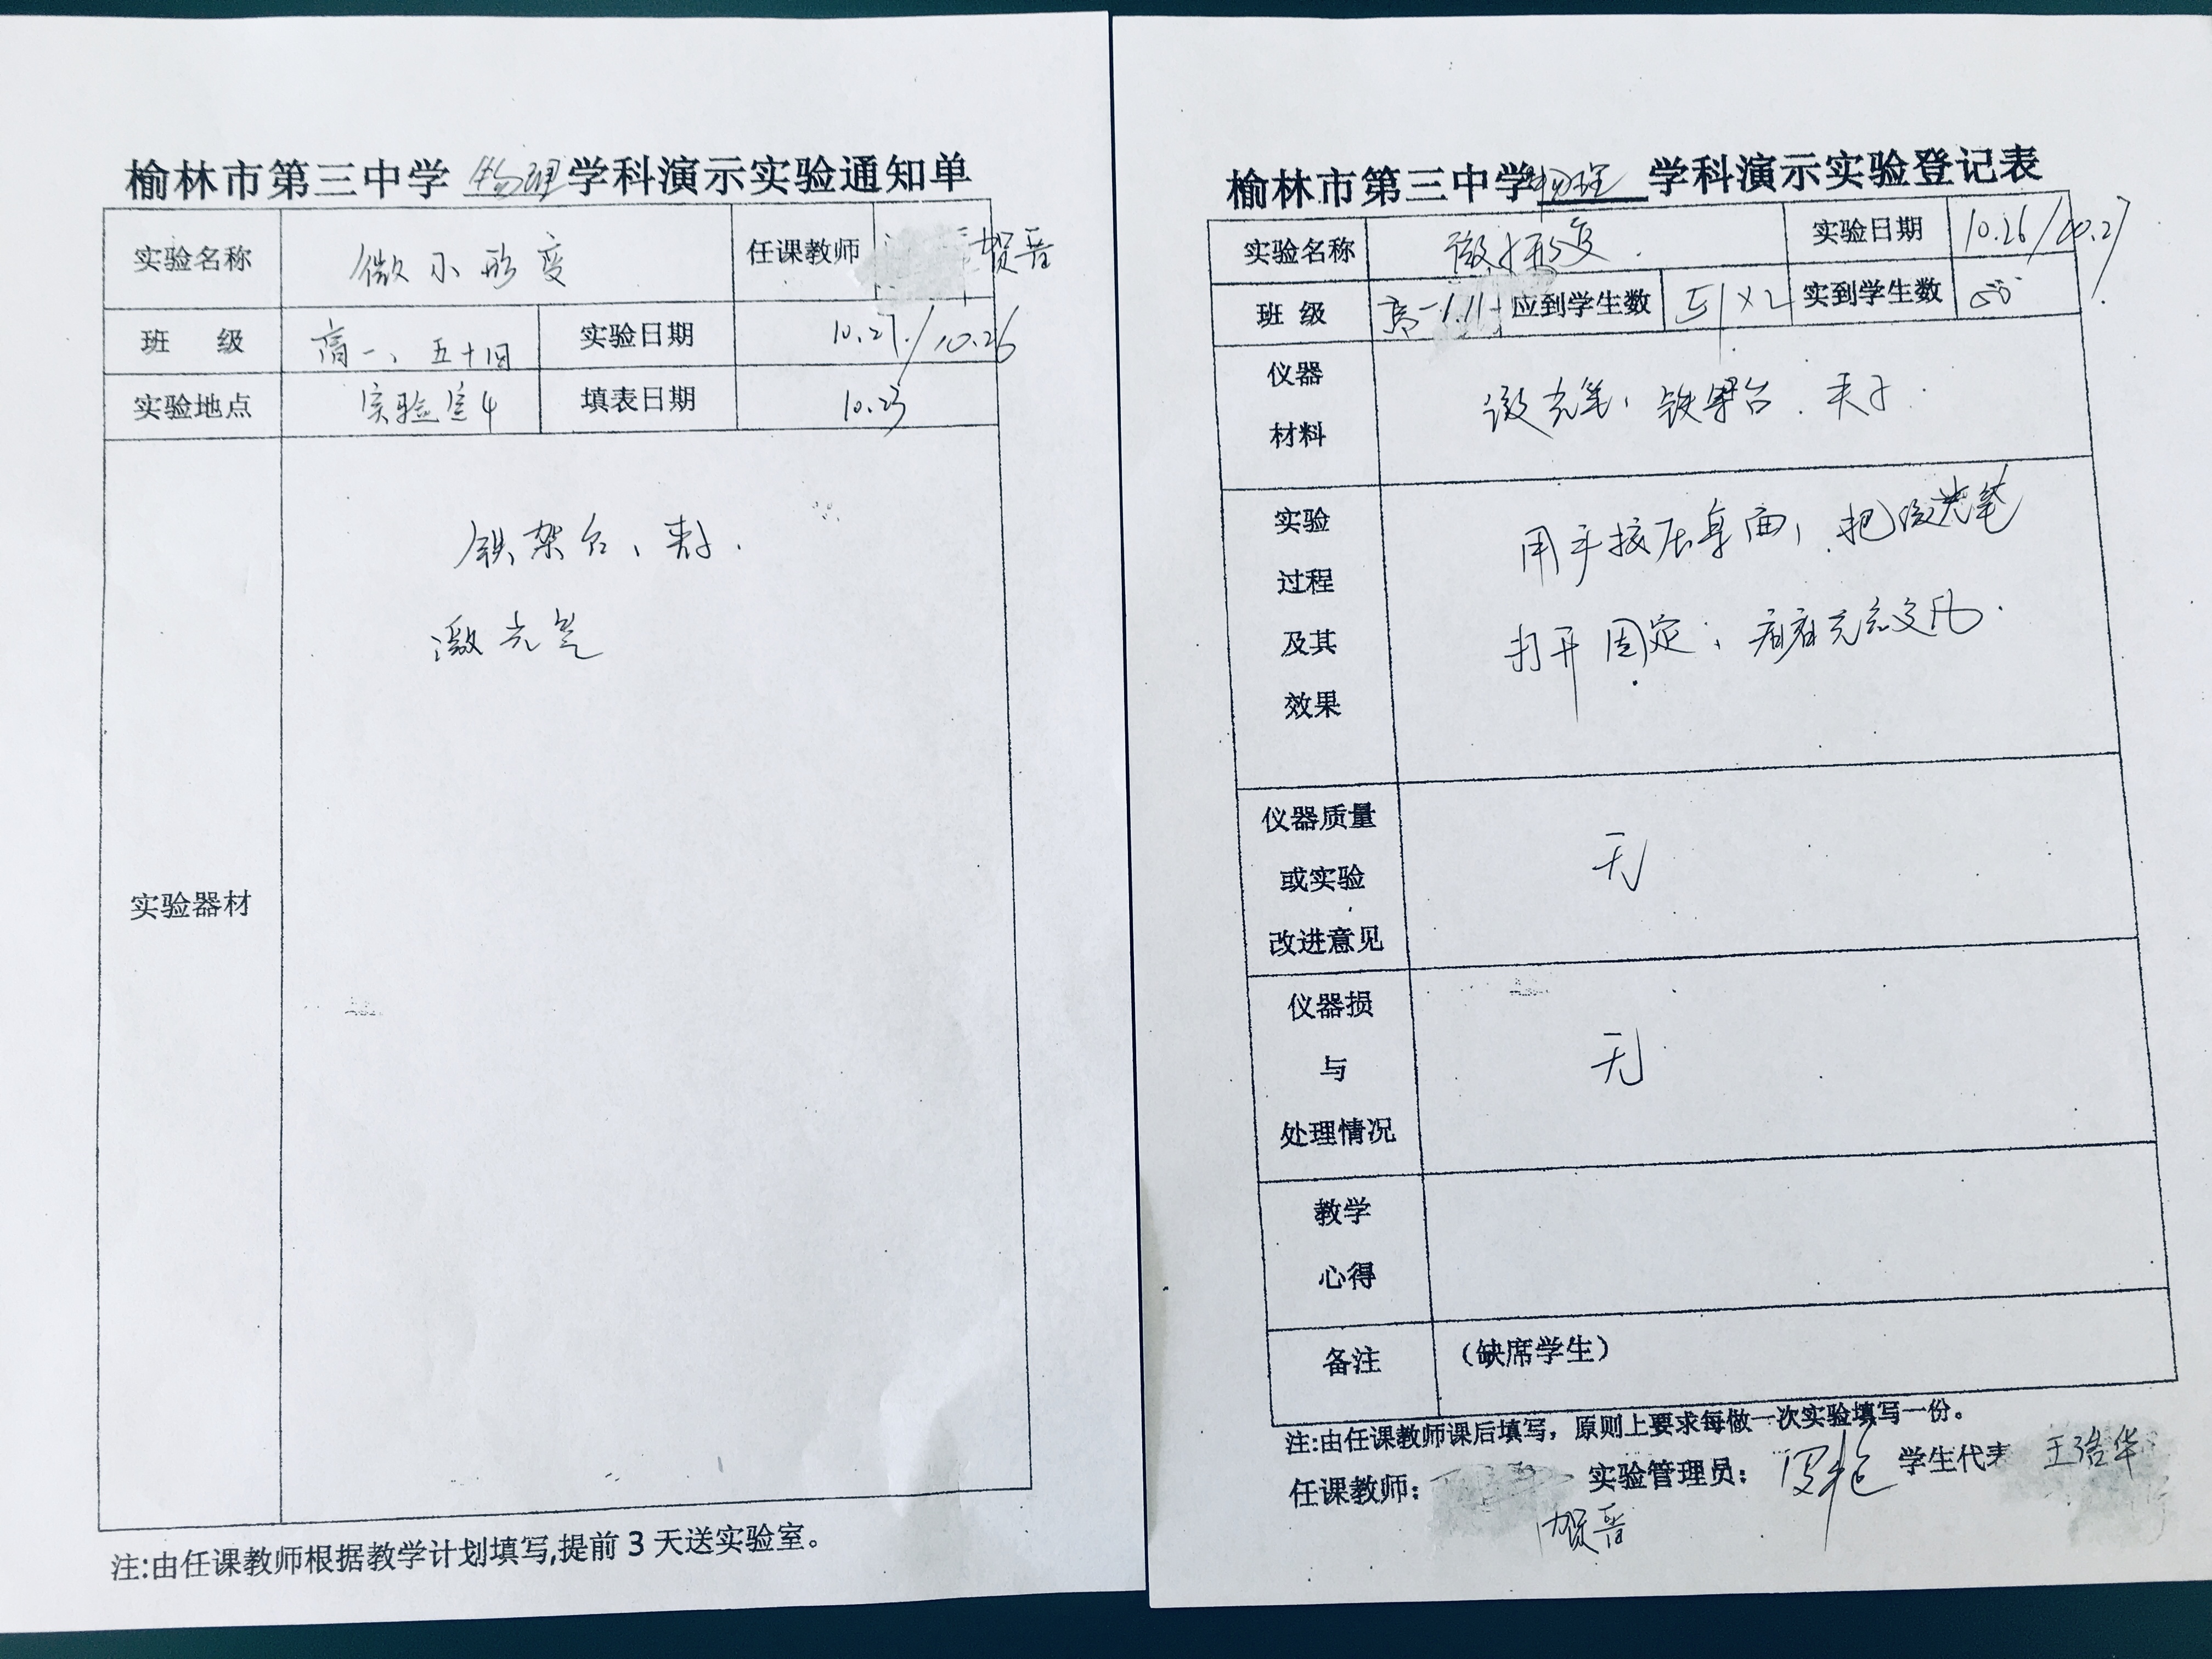 榆林市第三中学 物理 学科演示实验通知单
实验名称 微小形变 任课教师 贺晋
班 级 高一、五十四 实验日期 10.27/10.26
实验地点 实验室4 填表日期 10.23
铁架台、夹子.
激光笔
实验器材
注:由任课教师根据教学计划填写,提前3天送实验室。
榆林市第三中学 物理 学科演示实验登记表
实验名称 微小形变. 实验日期 10.26/10.27
班 级 高一 应到学生数 51×2 实到学生数
仪器
材料
激光笔、铁架台、夹子.
实验
过程
及其
效果
用手按压桌面,把激光笔
打开固定,看看光点变化.
仪器质量
或实验
改进意见
无
仪器损
与
处理情况
无
教学
心得
备注 (缺席学生)
注:由任课教师课后填写,原则上要求每做一次实验填写一份。
任课教师: 实验管理员: 学生代表 王浩华
贺晋